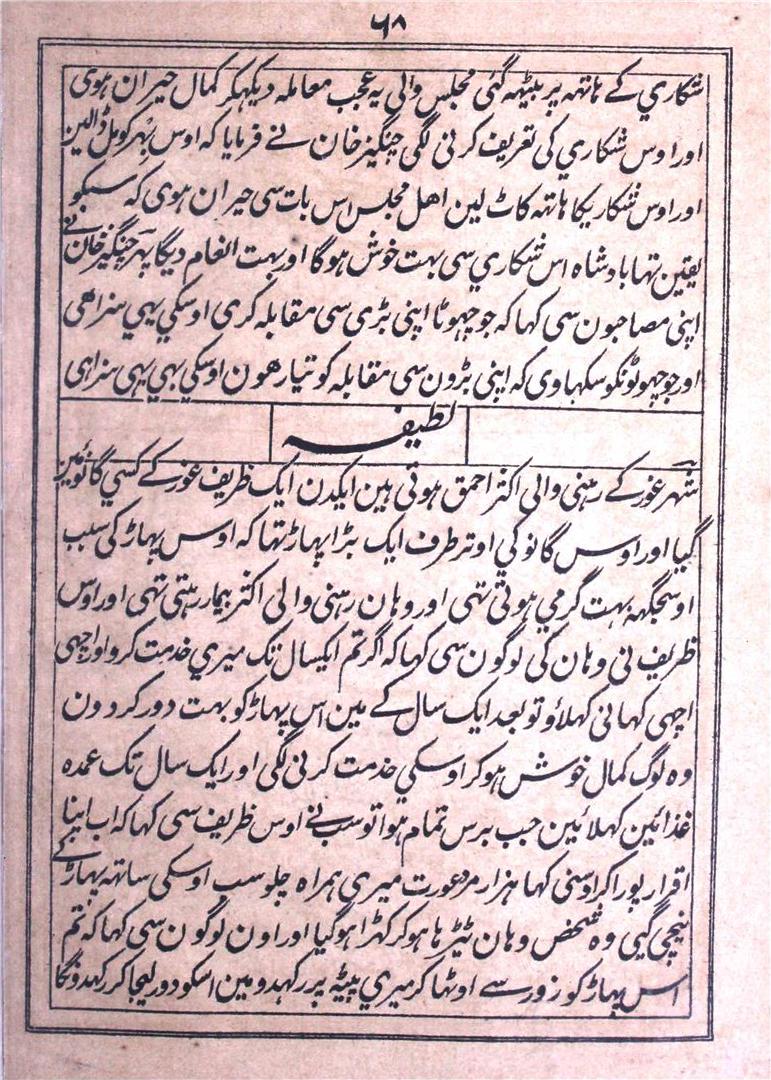 ۶۸
شکاري کے هاتهه پر بیٹهه گئی مجلس والی یه عجب معامله دیکهکر کمال حیران هوی
اور اوس شکاري کی تعریف کرنی لگی چنگیز خان نے فرمایا که اوس بهر کو مل ڈالین
اور اوس شکاریکا هاتهه کاٹ لین اهل مجلس اس بات سی حیران هوی که سبکو
یقین تها بادشاه اس شکاري سی بهت خوش هوگا اور بهت انعام دیگا پهر چنگیز خان نے
اپنی مصاحبون سی کها که جو چهوٹا اپنی بڑی سی مقابله کری اوسکي یهي سزا هی
اور جو چهوٹونکو سکهاوی که اپنی بڑون سی مقابله کو تیار هون اوسکي بهي یهی سزا هی
لطیفه
شهر غور کے رهنی والی اکثر احمق هوتی هین ایکدن ایک ظریف غور کے کسي گانوَمین
گیا اور اوس گانو کي اوتر طرف ایک بڑا پهاڑ تها که اوس پهاڑ کی سبب
اوسجگهه بهت گرمي هوتی تهی اور وهان رهنی والی اکثر بیمار رهتی تهی اور اوس
ظریف نی وهان کی لوگون سی کها که اگر تم ایکسال تک میري خدمت کرو اور اچهی
اچهی کهانی کهلاؤ تو بعد ایک سال کے مین اس پهاڑ کو بهت دور کر دون
وه لوگ کمال خوش هوکر اوسکي خدمت کرنی لگی اور ایک سال تک عمده
غذائین کهلائین جب برس تمام هوا تو سب نے اوس ظریف سی کها که اب اپنا
اقرار پورا کر اوسنی کها هزار مرد عورت میری همراه چلو سب اوسکی ساتهه پهاڑ کے
نیچی گیی وه شخص وهان ٹیڑها هوکر کهڑا هوگیا اور اون لوگون سی کها که تم
اس پهاڑ کو زور سے اوٹها کر میري پیٹهه پر رکهدو مین اسکو دور لیجا کر رکهدونگا